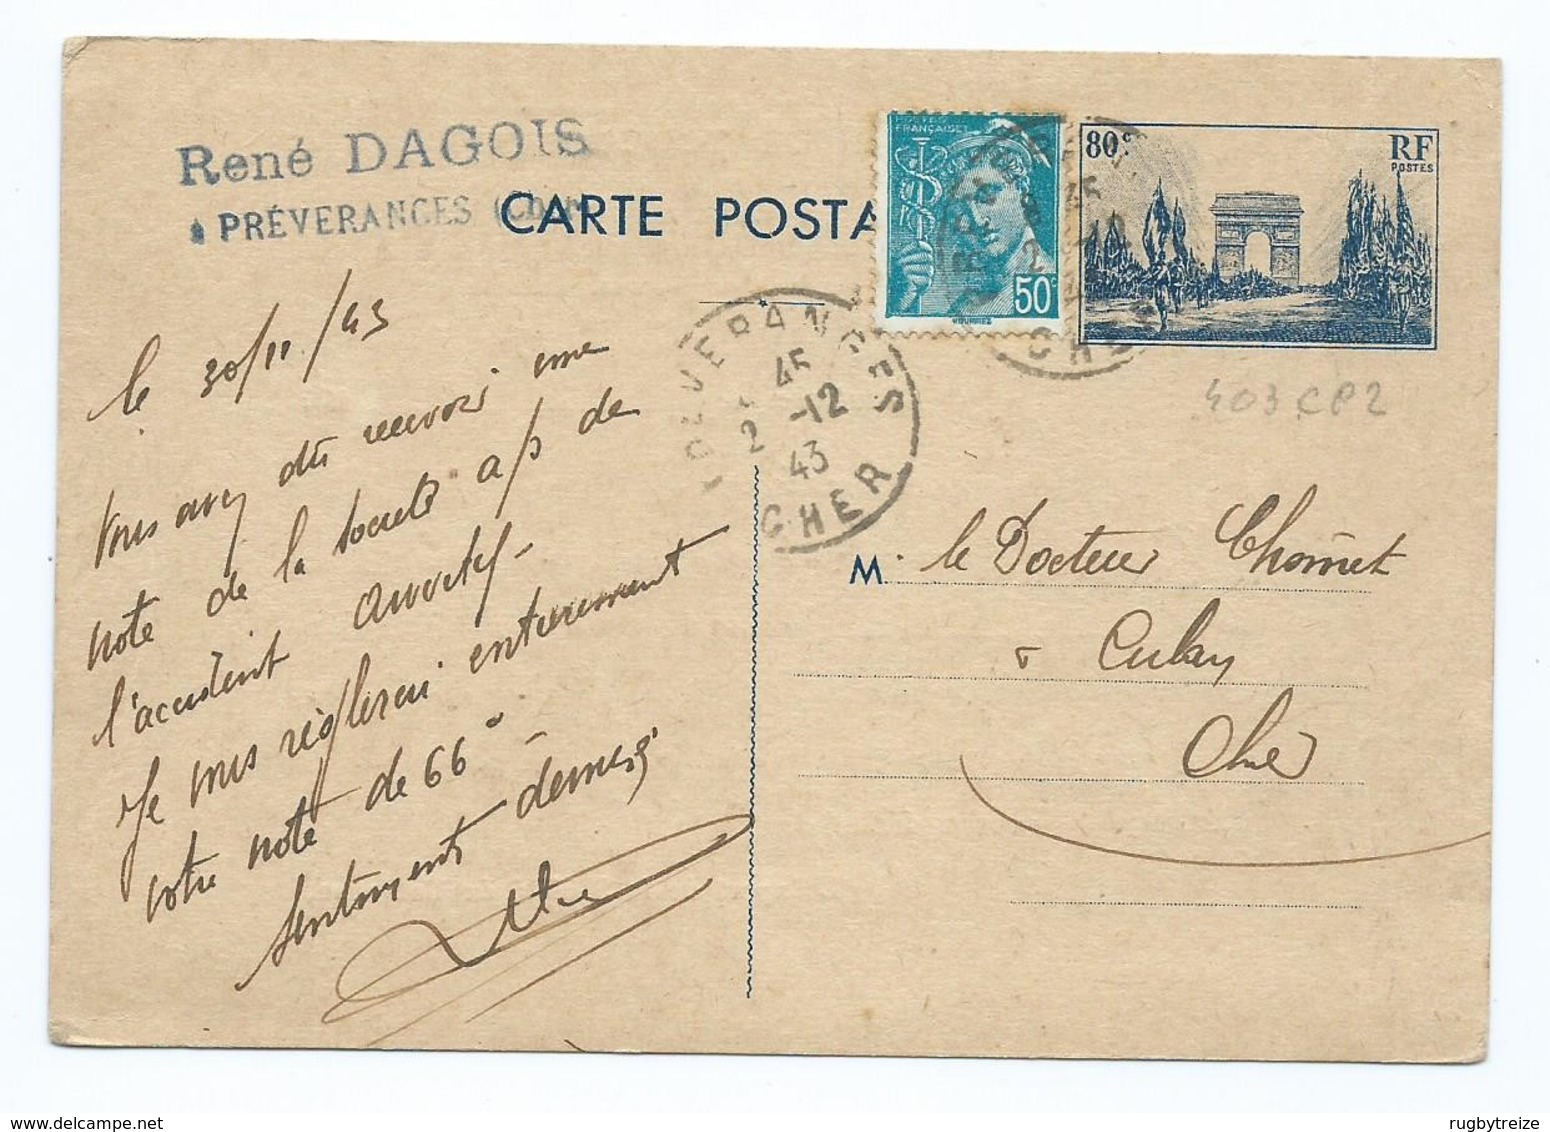 René DAGOIS
à PRÉVERANCES (Cher)
CARTE POSTA
POSTES FRANÇAISES
50c
80c
RF
POSTES
CHER
PREVERANGES
45
2 -12
43
CHER
403 CP2
le 30/11/43
Vous avez dû recevoir une
note de la société a/s de
l'accident
Je vous réglerai entièrement
votre note de 66°
sentiments
M. le Docteur Chomet
à Culan
Cher
rugbytreize